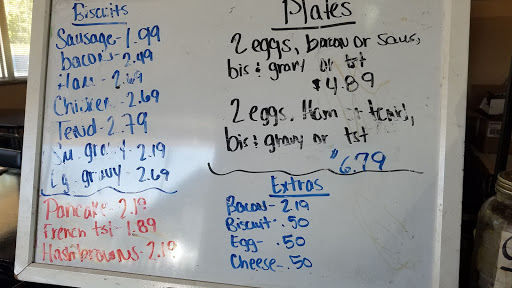 Biscuits
Sausage - 1.99
bacon - 2.49
Ham - 2.69
Chicken - 2.69
Tend - 2.79
Sm. gravy - 2.19
Lg. gravy - 2.69
Pancake - 2.19
French tst - 1.89
Hashbrowns - 2.19
Plates
2 eggs, bacon or saus,
bis & gravy or tst
$4.89
2 eggs. Ham
bis & gravy or tst
$6.79
Extras
Bacon - 2.19
Biscuit - .50
Egg - .50
Cheese - .50